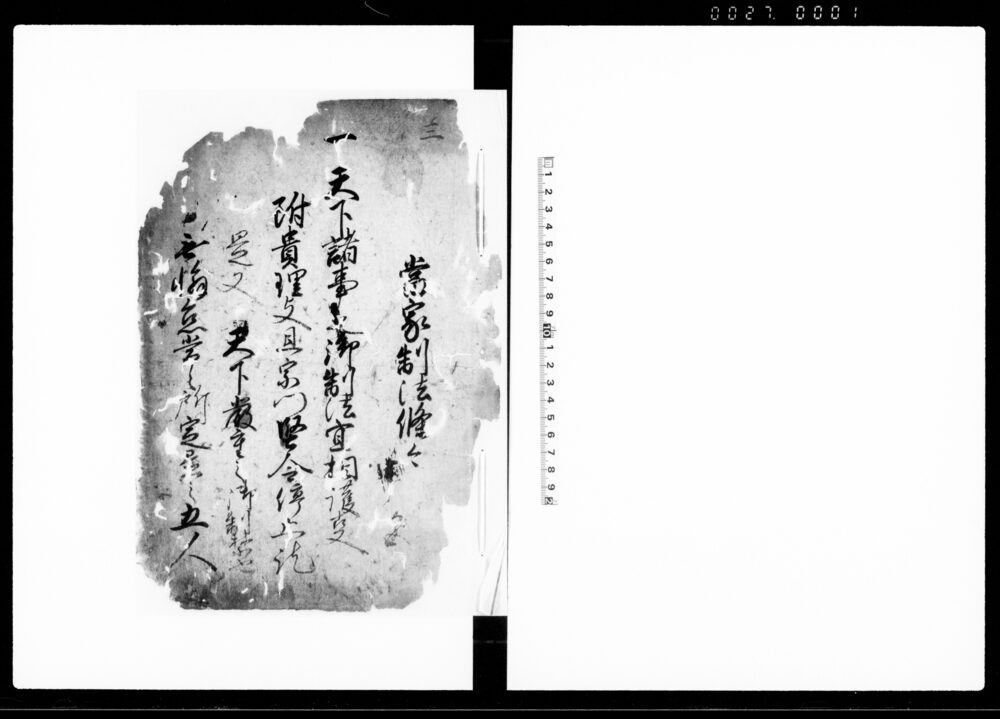 0027. 0001
三
當家制法條々
一天下諸事御制法宜相護事
附貴理支旦宗門堅令停止訖
是又天下嚴重之御制禁也
無懈怠若之所定置之五人
1 2 3 4 5 6 7 8 9 10 1 2 3 4 5 6 7 8 9